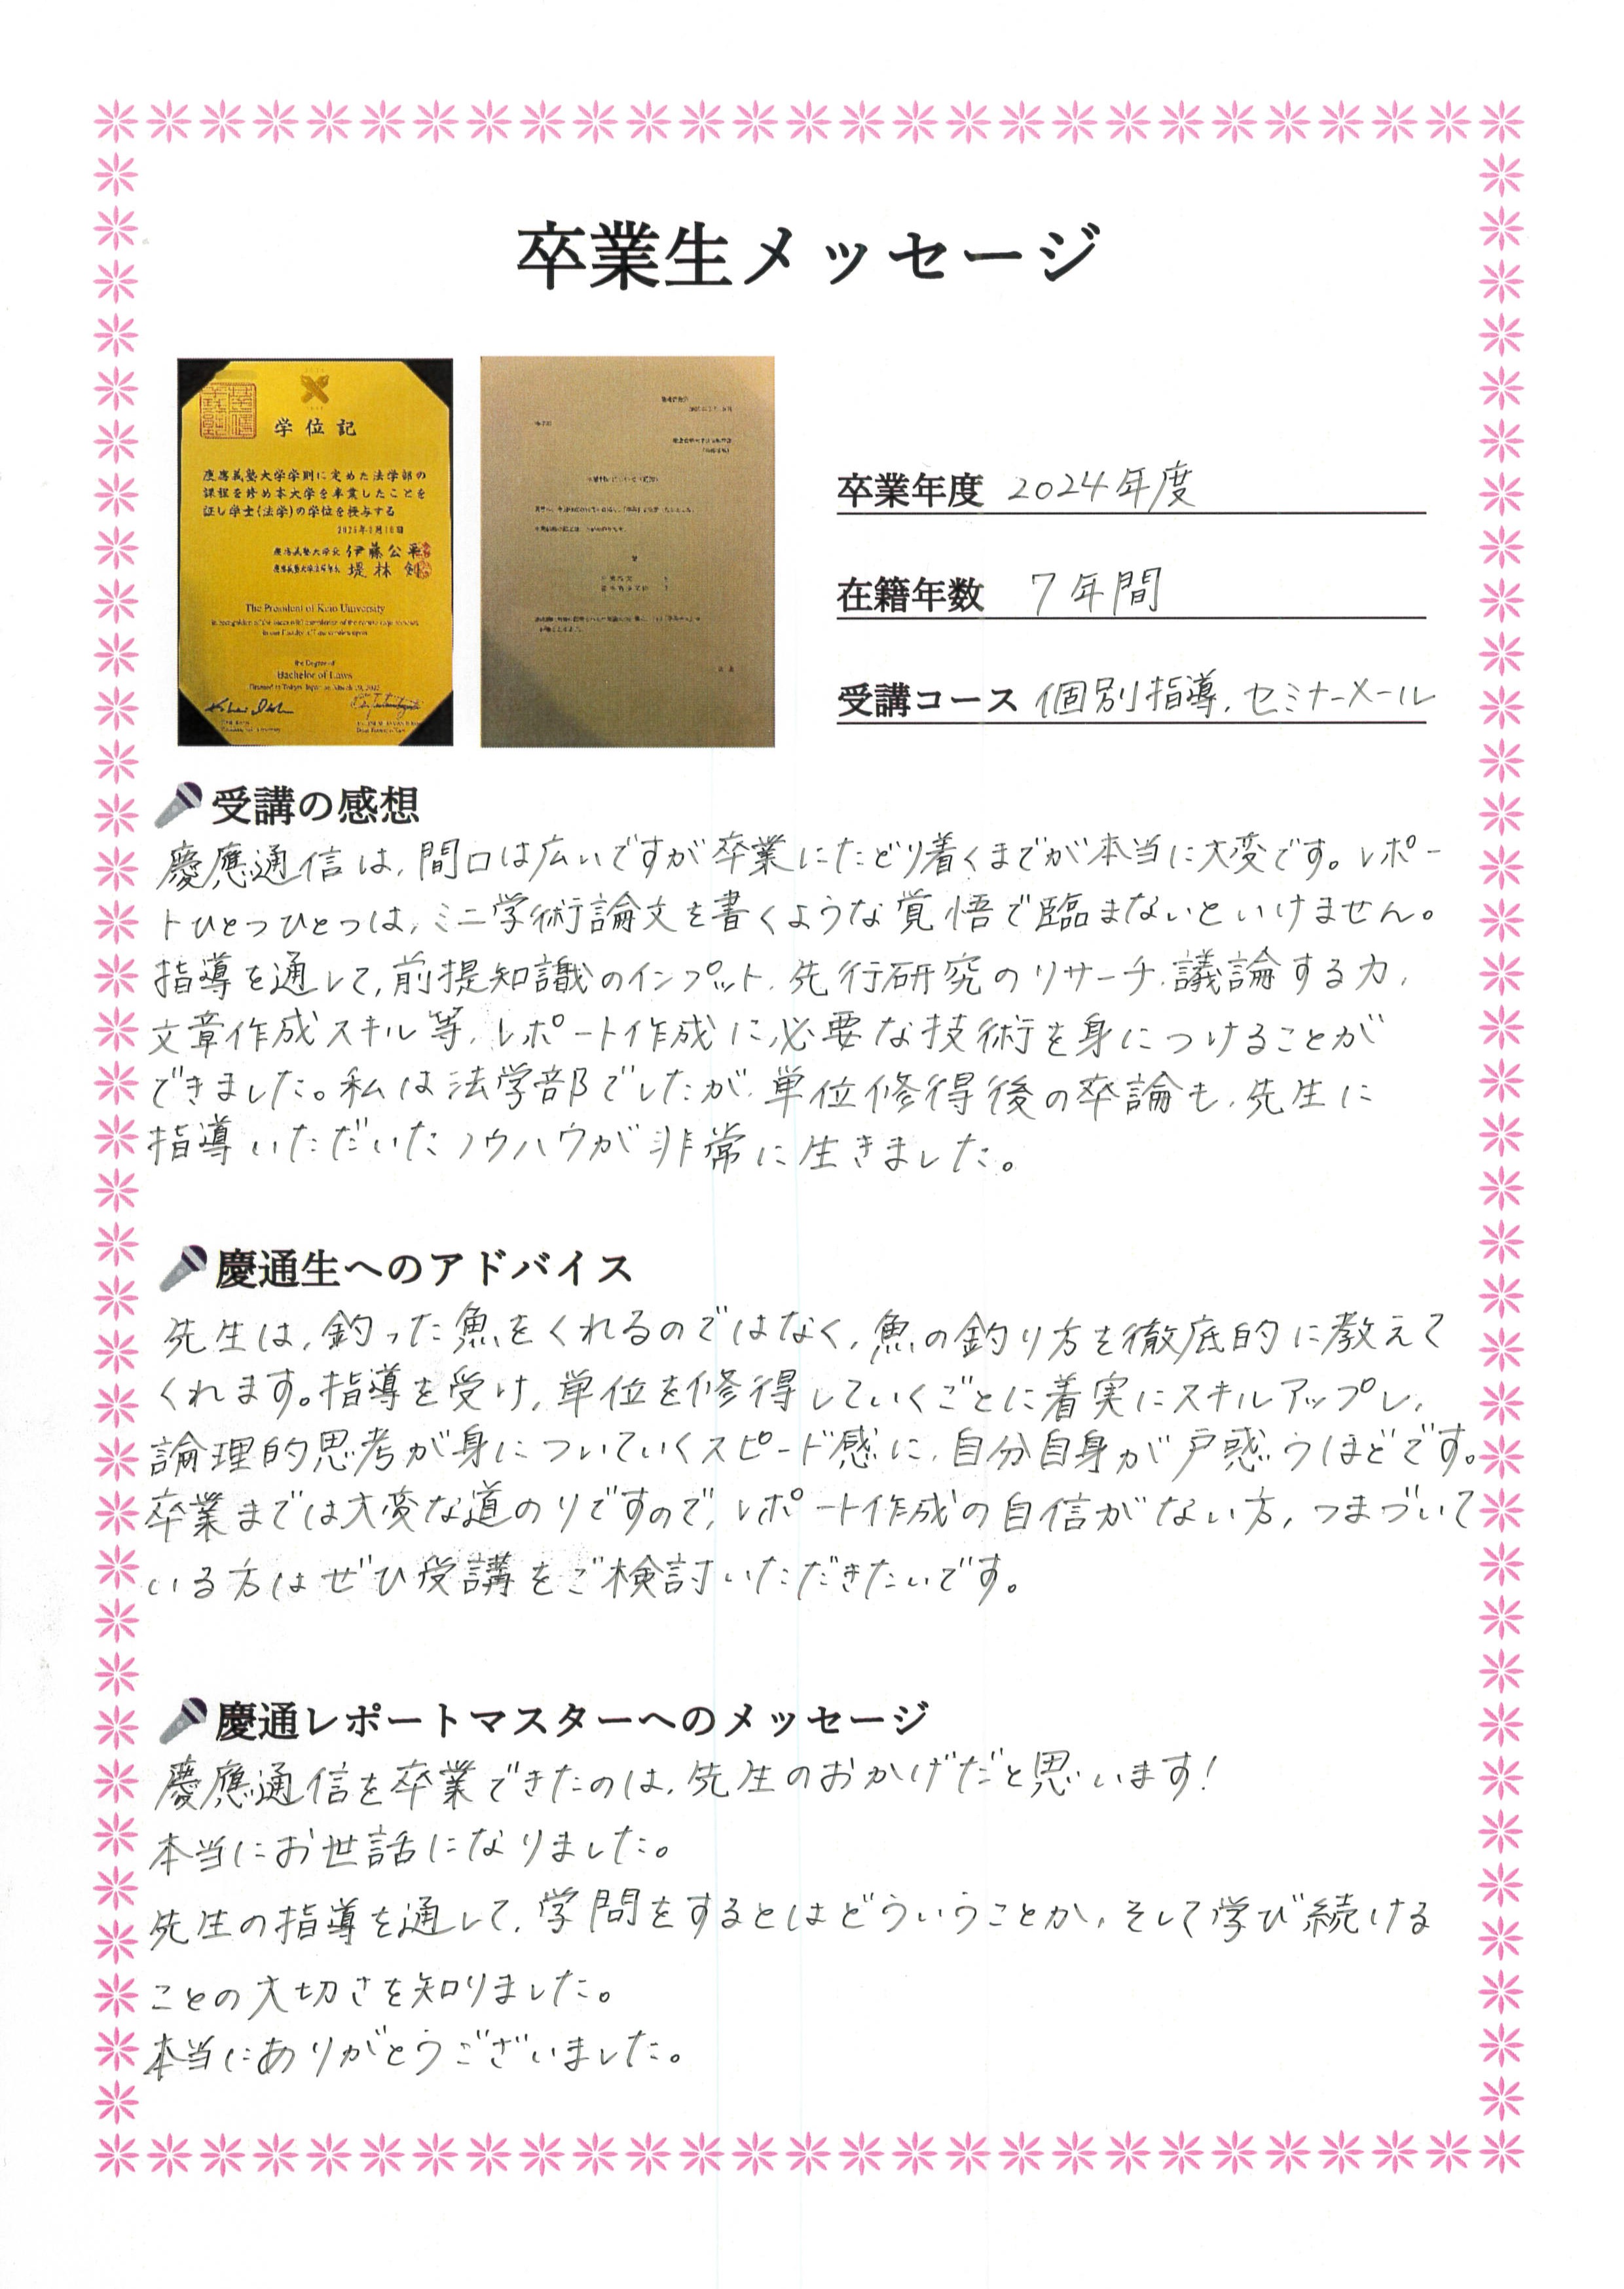 卒業生メッセージ
学位記
慶應義塾大学学則に定めた法学部の
課程を修め本大学を卒業したことを
証し学士(法学)の学位を授与する
慶應義塾大学長 伊藤公平
The President of Keio University
the Degree of
Bachelor of Laws
卒業年度 2024年度
在籍年数 7年間
受講コース 個別指導、セミナーメール
受講の感想
慶應通信は、間口は広いですが卒業にたどり着くまでが本当に大変です。レポー
トひとつひとつは、ミニ学術論文を書くような覚悟で臨まないといけません。
指導を通して、前提知識のインプット、先行研究のリサーチ、議論する力、
文章作成スキル等、レポート作成に必要な技術を身につけることが
できました。私は法学部でしたが、単位修得後の卒論も、先生に
指導いただいたノウハウが非常に生きました。
慶通生へのアドバイス
先生は、釣った魚をくれるのではなく、魚の釣り方を徹底的に教えて
くれます。指導を受け、単位を修得していくごとに着実にスキルアップし、
論理的思考が身についていくスピード感に、自分自身が戸惑うほどです。
卒業までは大変な道のりですので、レポート作成の自信がない方、つまづいて
いる方はぜひ受講をご検討いただきたいです。
慶通レポートマスターへのメッセージ
慶應通信を卒業できたのは、先生のおかげだと思います!
本当にお世話になりました。
先生の指導を通して、学問をするとはどういうことか、そして学び続ける
ことの大切さを知りました。
本当にありがとうございました。